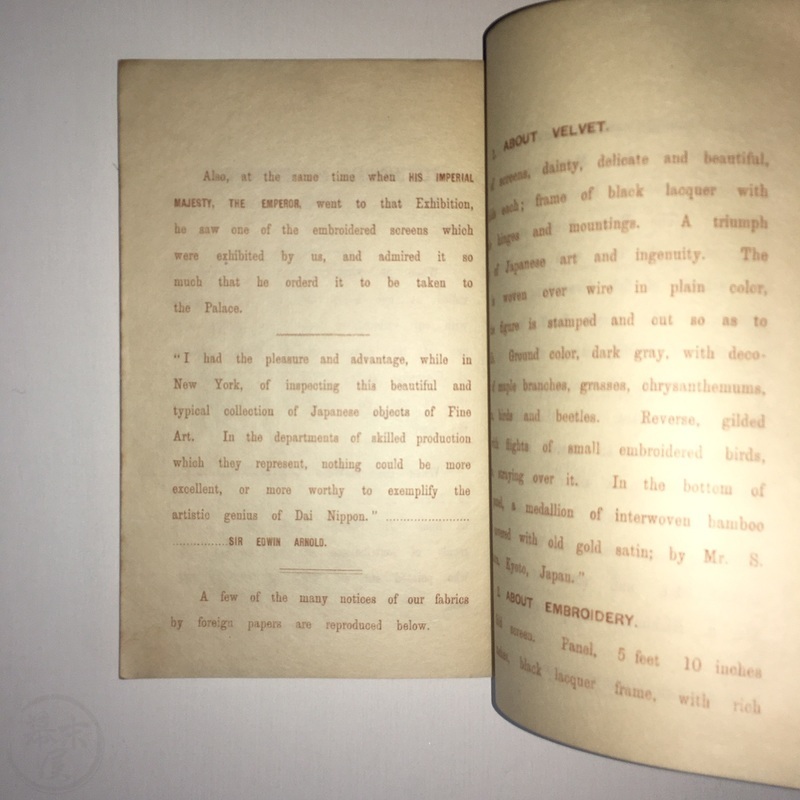 Also, at the same time when HIS IMPERIAL
MAJESTY, THE EMPEROR, went to that Exhibition,
he saw one of the embroidered screens which
were exhibited by us, and admired it so
much that he orderd it to be taken to
the Palace.
"I had the pleasure and advantage, while in
New York, of inspecting this beautiful and
typical collection of Japanese objects of Fine
Art. In the departments of skilled production
which they represent, nothing could be more
excellent, or more worthy to exemplify the
artistic genius of Dai Nippon." ........................
................SIR EDWIN ARNOLD.
A few of the many notices of our fabrics
by foreign papers are reproduced below.
ABOUT VELVET.
screens, dainty, delicate and beautiful,
each; frame of black lacquer with
hinges and mountings. A triumph
of Japanese art and ingenuity. The
woven over wire in plain color,
figure is stamped and cut so as to
Ground color, dark gray, with deco-
maple branches, grasses, chrysanthemums,
birds and beetles. Reverse, gilded
flights of small embroidered birds,
straying over it. In the bottom of
a medallion of interwoven bamboo
with old gold satin; by Mr. S.
Kyoto, Japan."
ABOUT EMBROIDERY.
screen. Panel, 5 feet 10 inches
black lacquer frame, with rich